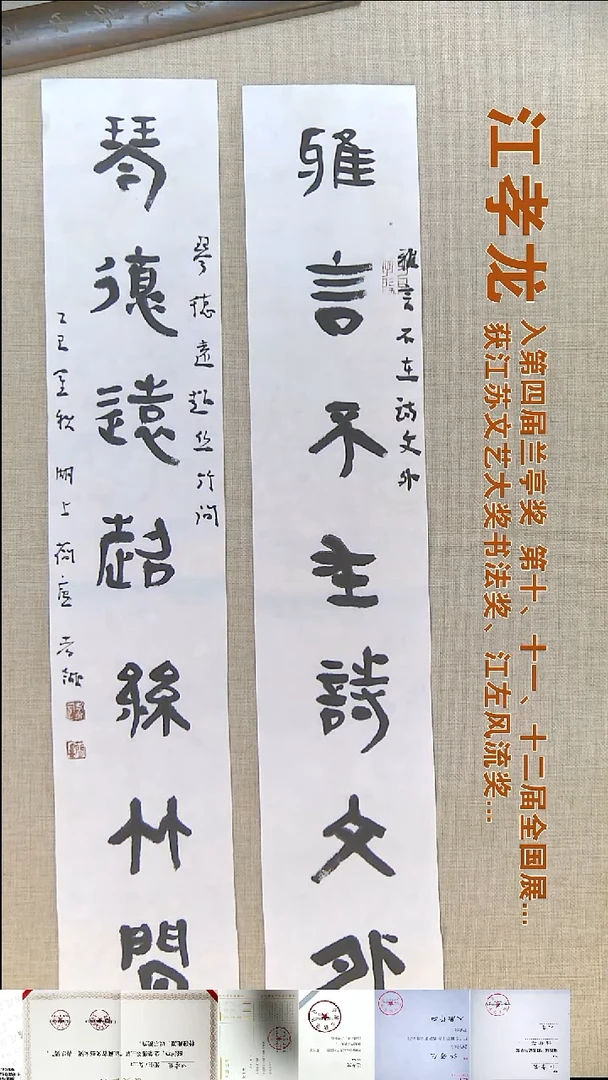 雅言不在詩文外
雅言不在詩文外
琴德遠超絲竹間
琴德遠超丝竹间
乙巳金秋 湖上 荷廬 孝龍
江孝龙
入第四届兰亭奖 第十、十一、十二届全国展...
获江苏文艺大奖书法奖、江左风流奖...